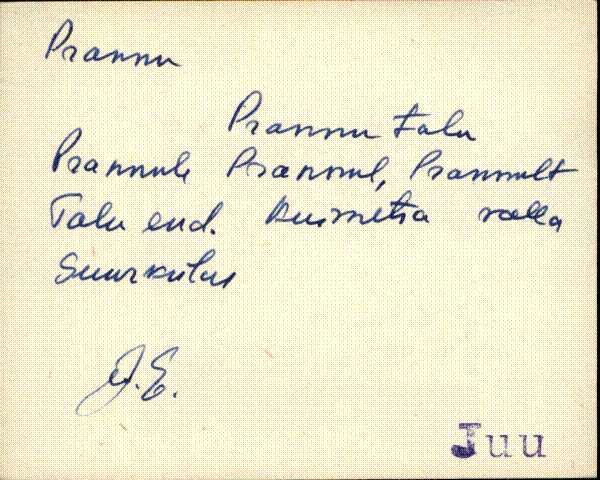 Prannu
Prannu talu
Prannule Prannul, Prannult
Talu end. Kuimetsa valla
Suurkülas
J.E.
Juu